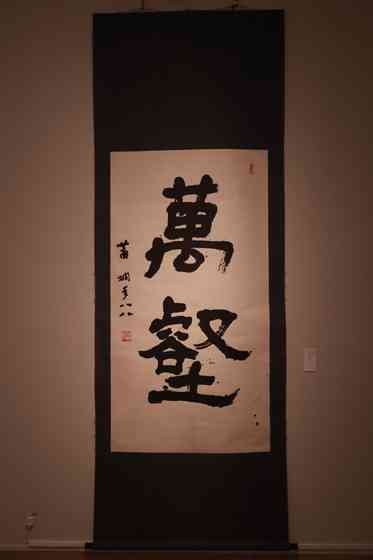 萬壑
蕭嫻年八八